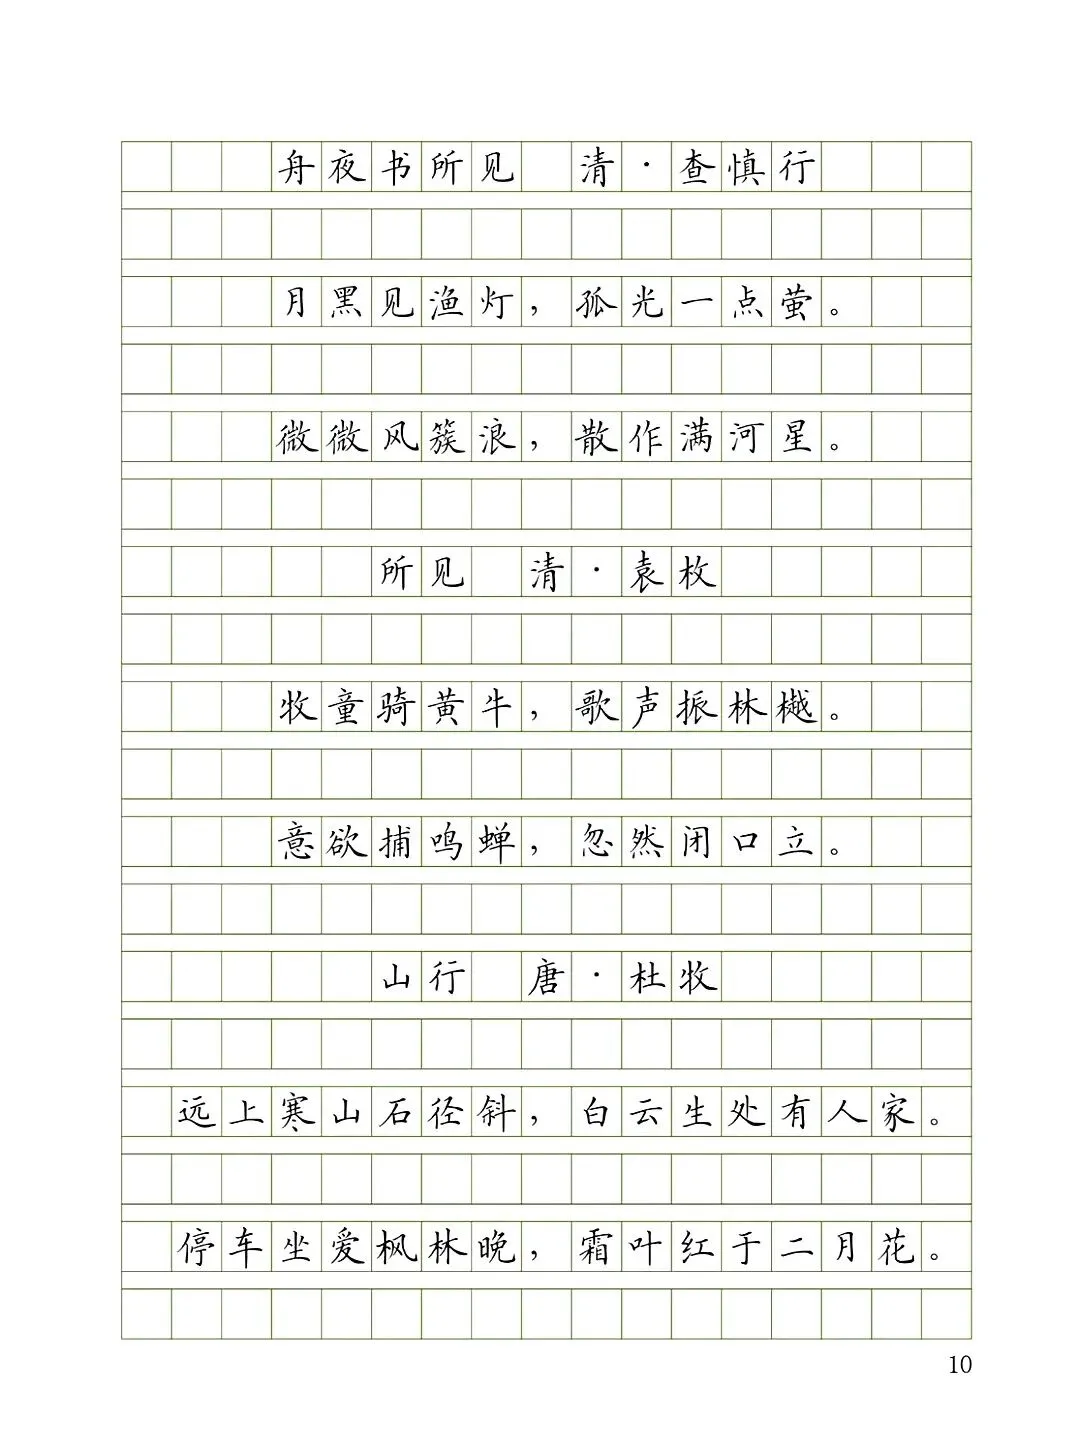 舟夜书所见 清·查慎行
月黑见渔灯，孤光一点萤。
微微风簇浪，散作满河星。
所见 清·袁枚
牧童骑黄牛，歌声振林樾。
意欲捕鸣蝉，忽然闭口立。
山行 唐·杜牧
远上寒山石径斜，白云生处有人家。
停车坐爱枫林晚，霜叶红于二月花。
10